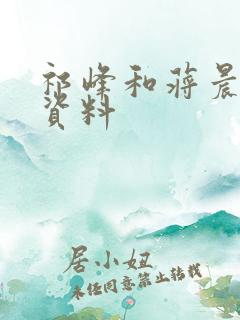 祁峰和蒋晨
资料
居小妞
未经同意禁止转载